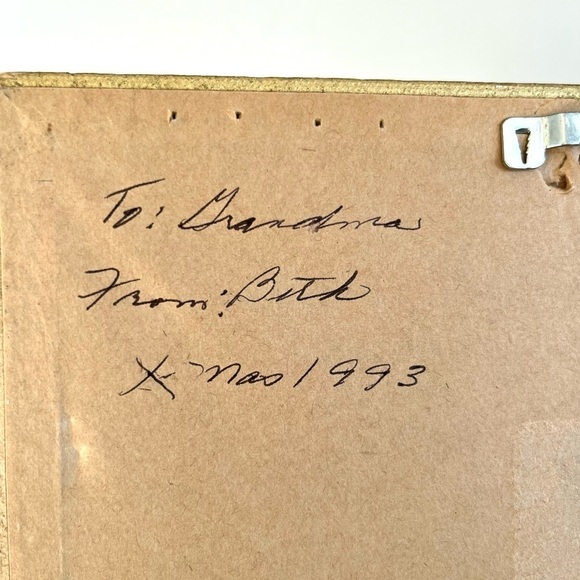 To: Grandma
From: Beth
X-mas 1993